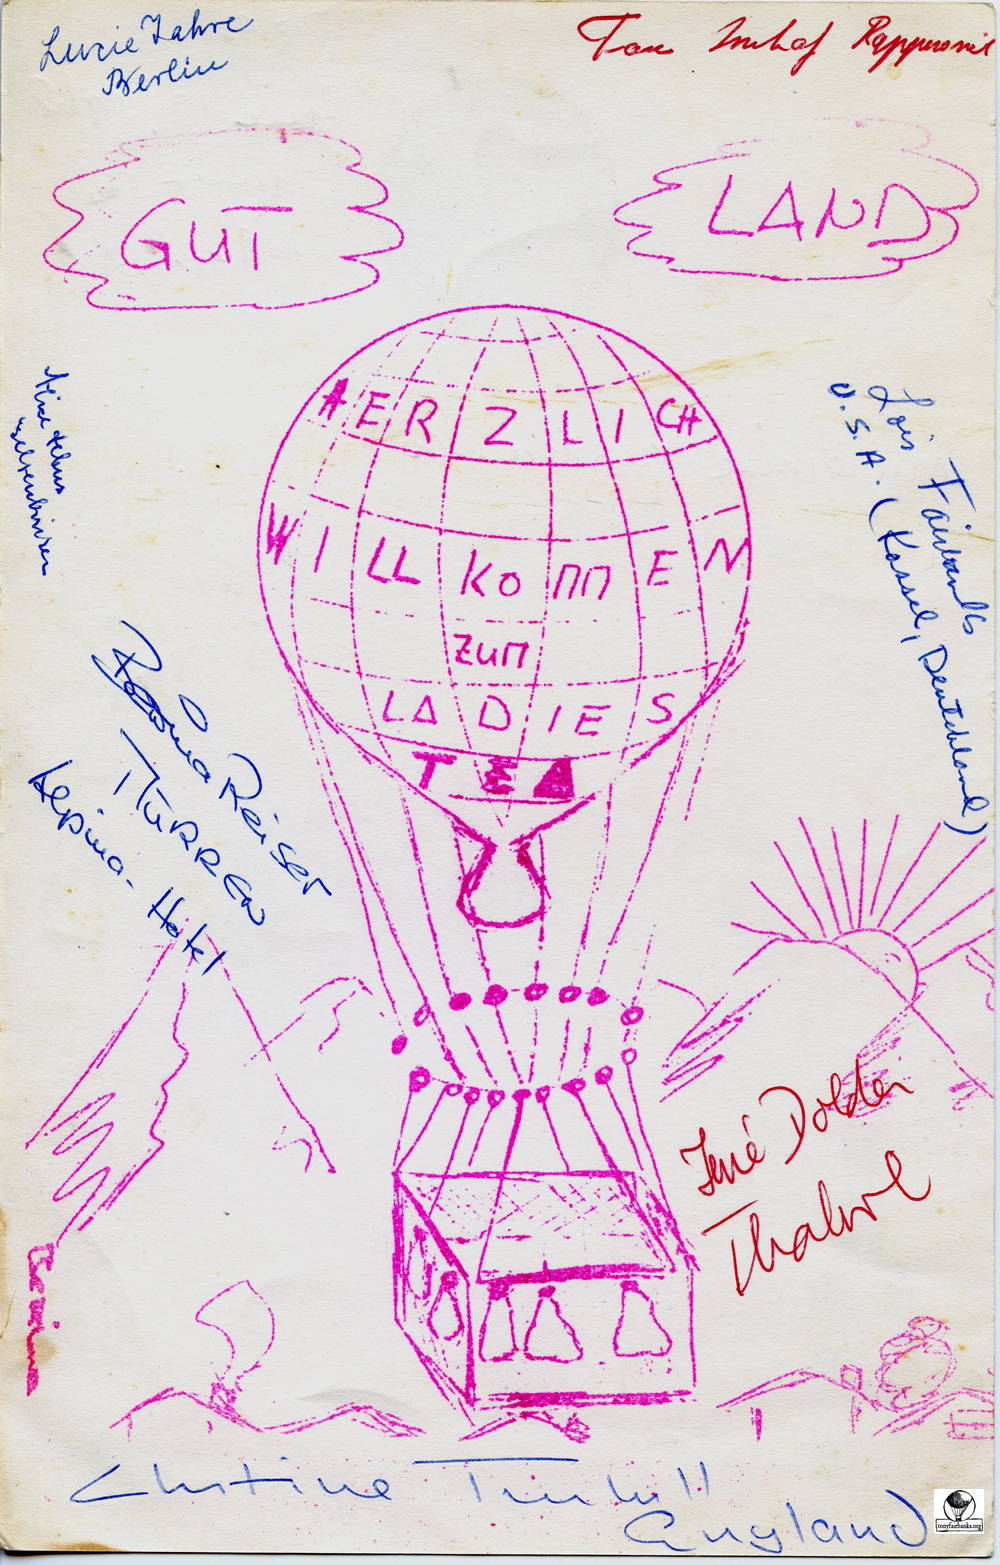 Lucie Zahre
Berlin
GUT
LAND
HERZLICH
WILLKOMMEN
zum
LADIES
TEA
Lois Fairbanks
U.S.A. (Kassel, Deutchland)
Reiser
MÜRREN
Alpina-Hotel
Dolder
Thalwil
Christine Turnbull
England
tonyfairbanks.org